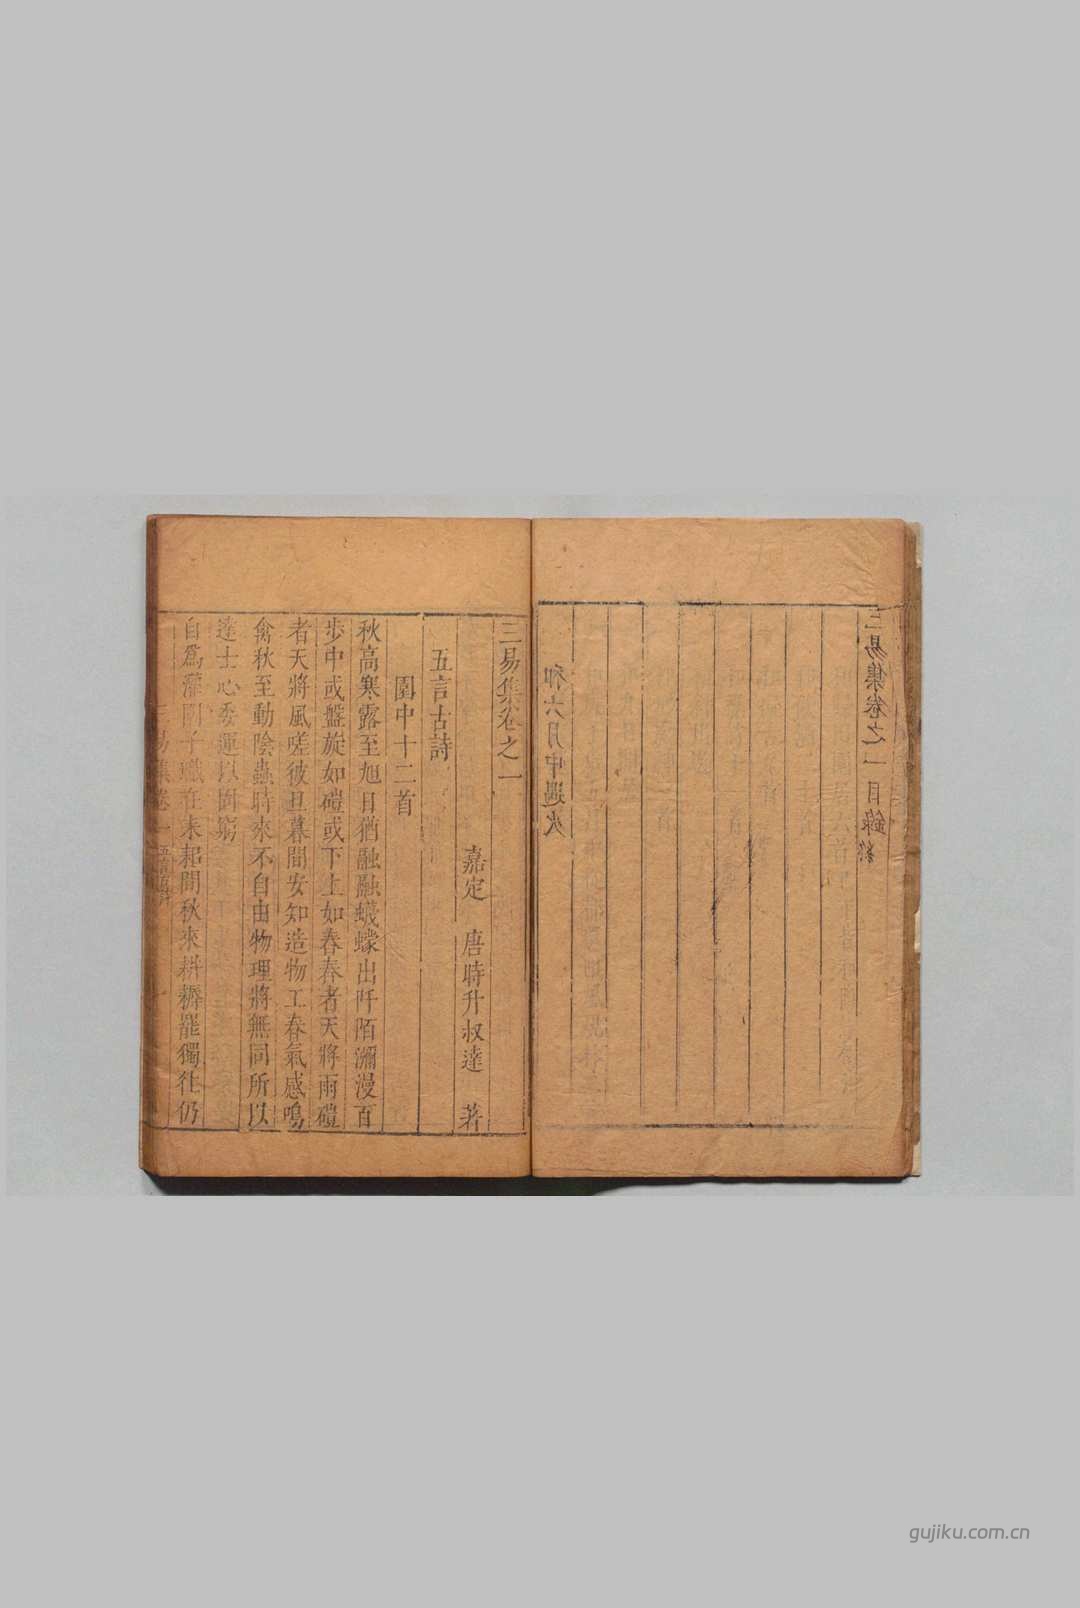 和六月中遇火
三易集卷之一目錄終
三易集卷之一
嘉定 唐時升叔達 著
五言古詩
園中十二首
秋高寒露至旭日猶融融蠛蠓出阡陌瀰漫百
步中或盤旋如磑或下上如舂舂者天將雨磑
者天將風嗟彼旦暮間安知造物工春氣感鳴
禽秋至動陰蟲時來不自由物理將無同所以
達士心委運以固窮
自為灌園子職在耒耜間秋來耕耨罷獨往仍
gujiku.com.cn